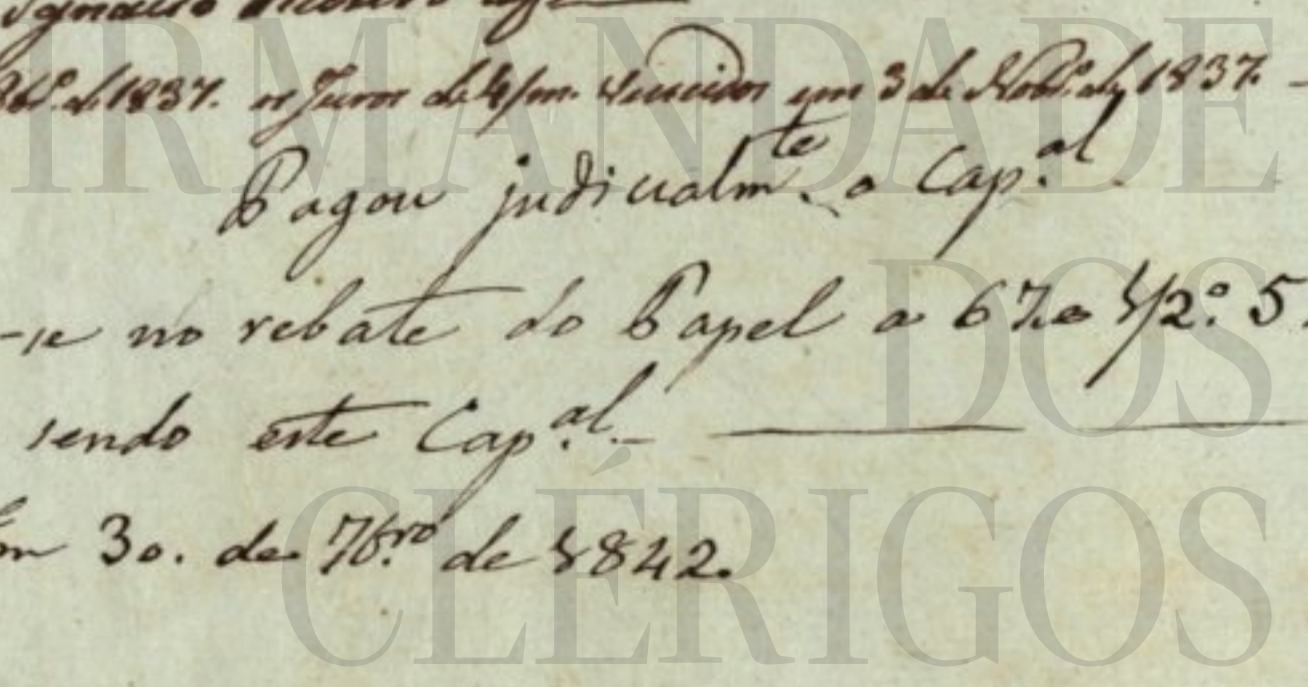 Ignacio
de 1837. os Juros de 4/m. Vencidos em 3 de Novbr.º de 1837. –
Pagou judicialm.te o Cap.al
-se no rebate do Papel a 67 e 1/2.º 5
sendo este Cap.al –
Em 30. de 7b.ro de 1842.
IRMANDADE
DOS
CLÉRIGOS